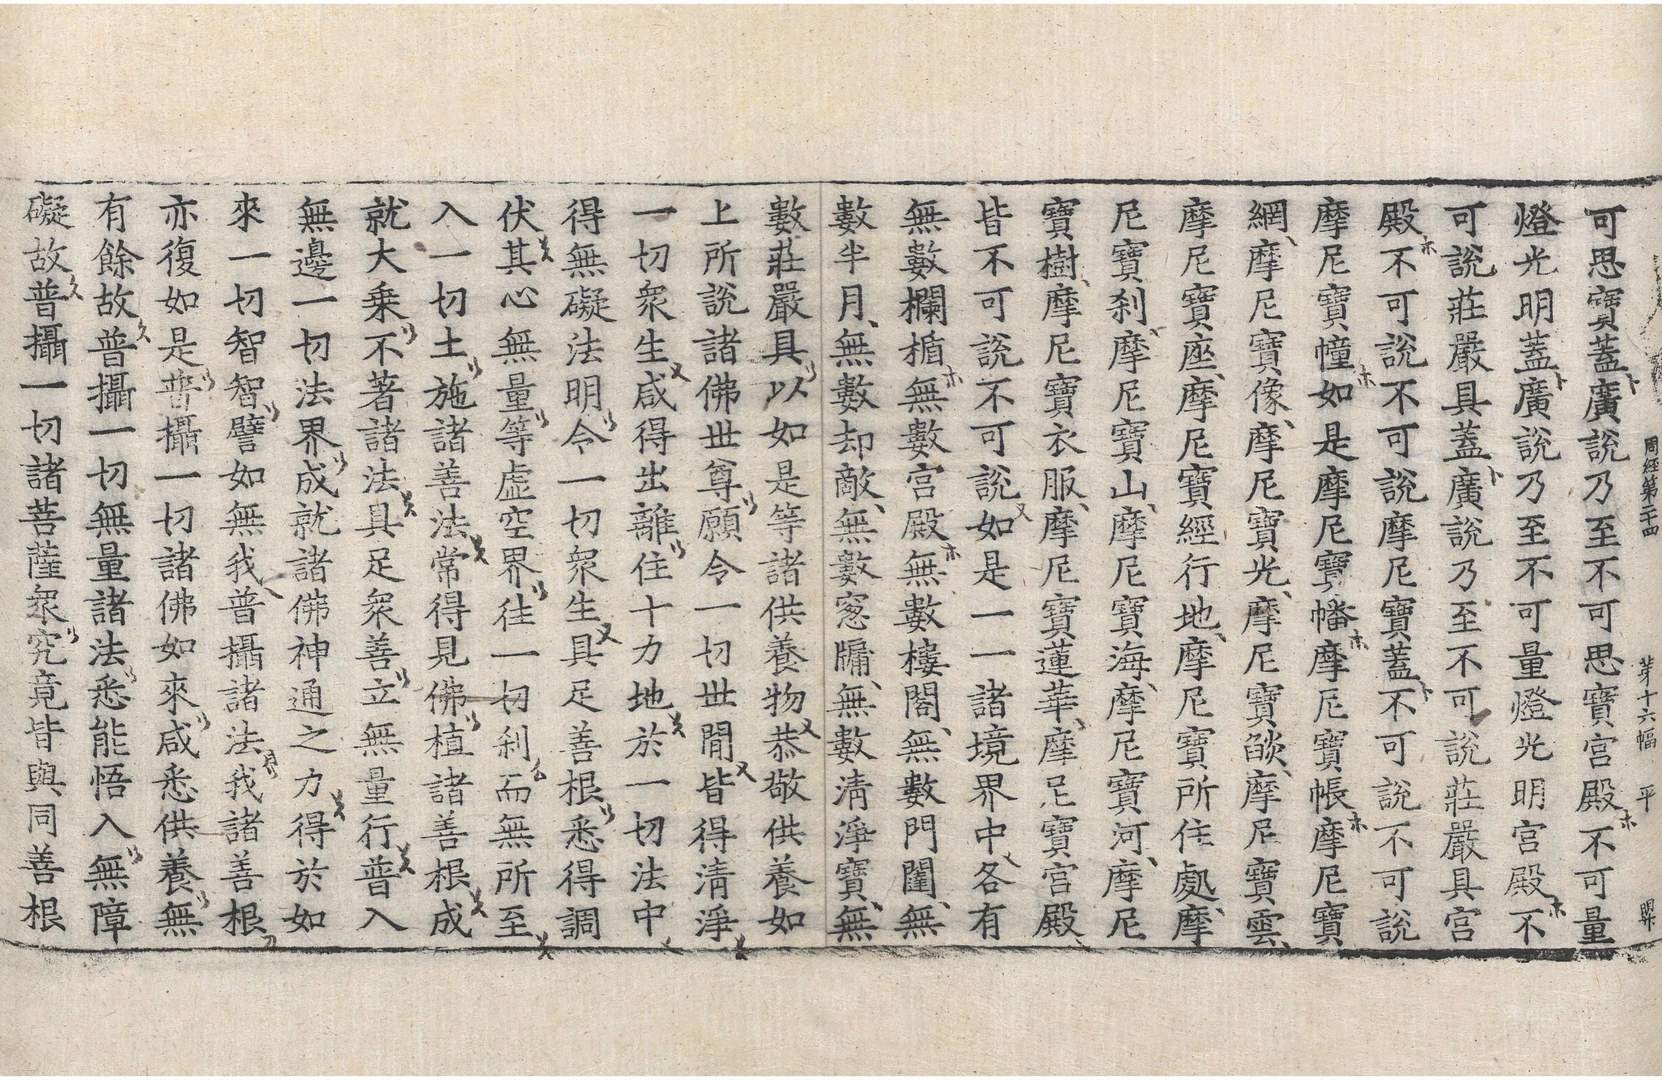 周經第二十四 第十六幅 平
可思寶蓋廣說乃至不可思寶宮殿不可量
燈光明蓋廣說乃至不可量燈光明宮殿不
可說莊嚴具蓋廣說乃至不可說莊嚴具宮
殿不可說不可說摩尼寶蓋不可說不可說
摩尼寶幢如是摩尼寶幡摩尼寶帳摩尼寶
網摩尼寶像摩尼寶光摩尼寶燄摩尼寶雲
摩尼寶座摩尼寶經行地摩尼寶所住處摩
尼寶刹摩尼寶山摩尼寶海摩尼寶河摩尼
寶樹摩尼寶衣服摩尼寶蓮華摩尼寶宮殿
皆不可說不可說如是一一諸境界中各有
無數欄楯無數宮殿無數樓閣無數門闥無
數半月無數却敵無數窓牖無數清淨寶無
數莊嚴具以如是等諸供養物恭敬供養如
上所說諸佛世尊願令一切世間皆得清淨
一切衆生咸得出離住十力地於一切法中
得無礙法明令一切衆生具足善根悉得調
伏其心無量等虛空界往一切刹而無所至
入一切土施諸善法常得見佛植諸善根成
就大乗不著諸法具足衆善立無量行普入
無邊一切法界成就諸佛神通之力得於如
來一切智智譬如無我普攝諸法我諸善根
亦復如是普攝一切諸佛如來咸悉供養無
有餘故普攝一切無量諸法悉能悟入無障
礙故普攝一切諸菩薩衆究竟皆與同善根